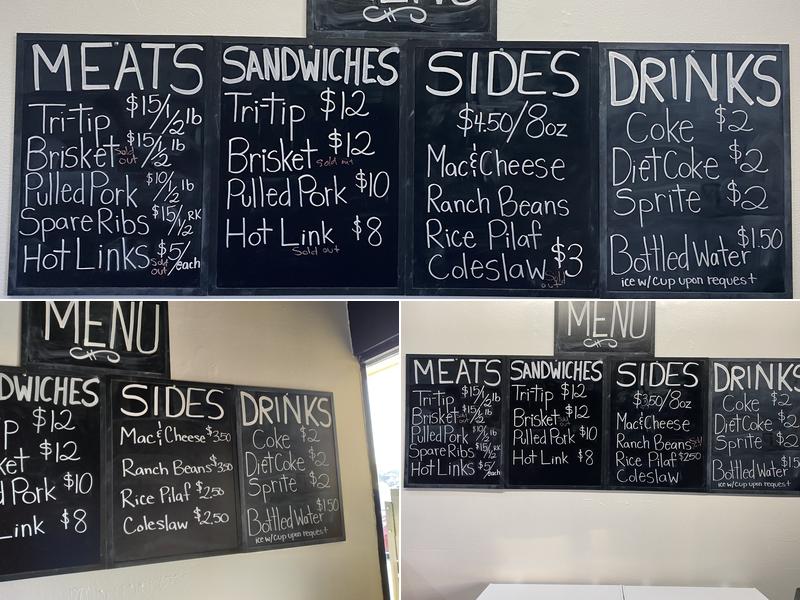 MENU
MEATS
Tri-Tip $15/½ lb
Brisket Sold out $15/½ lb
Pulled Pork $10/½ lb
Spare Ribs $15/½ RK
Hot Links Sold out $5/each
SANDWICHES
Tri-tip $12
Brisket $12
Sold out
Pulled Pork $10
Hot Link $8
Sold out
SIDES
$4.50/8oz
Mac & Cheese
Ranch Beans
Rice Pilaf
Coleslaw $3
Sold out
DRINKS
Coke $2
Diet Coke $2
Sprite $2
Bottled Water $1.50
ice w/cup upon request
MENU
DWICHES
p $12
ket $12
d Pork $10
Link $8
SIDES
Mac & Cheese $3.50
Ranch Beans $3.50
Rice Pilaf $2.50
Coleslaw $2.50
DRINKS
Coke $2
Diet Coke $2
Sprite $2
Bottled Water $1.50
ice w/cup upon request
MENU
MEATS
Tri-Tip $15/½ lb
Brisket $15/½ lb
Pulled Pork $10/½ lb
Spare Ribs $15/½ RK
Hot Links $5/each
SANDWICHES
Tri-tip $12
Brisket $12
Pulled Pork $10
Hot Link $8
SIDES
$3.50/8oz
Mac & Cheese
Ranch Beans
Rice Pilaf $2.50
Coleslaw
DRINKS
Coke $2
Diet Coke $2
Sprite $2
Bottled Water $1.5
ice w/cup upon request